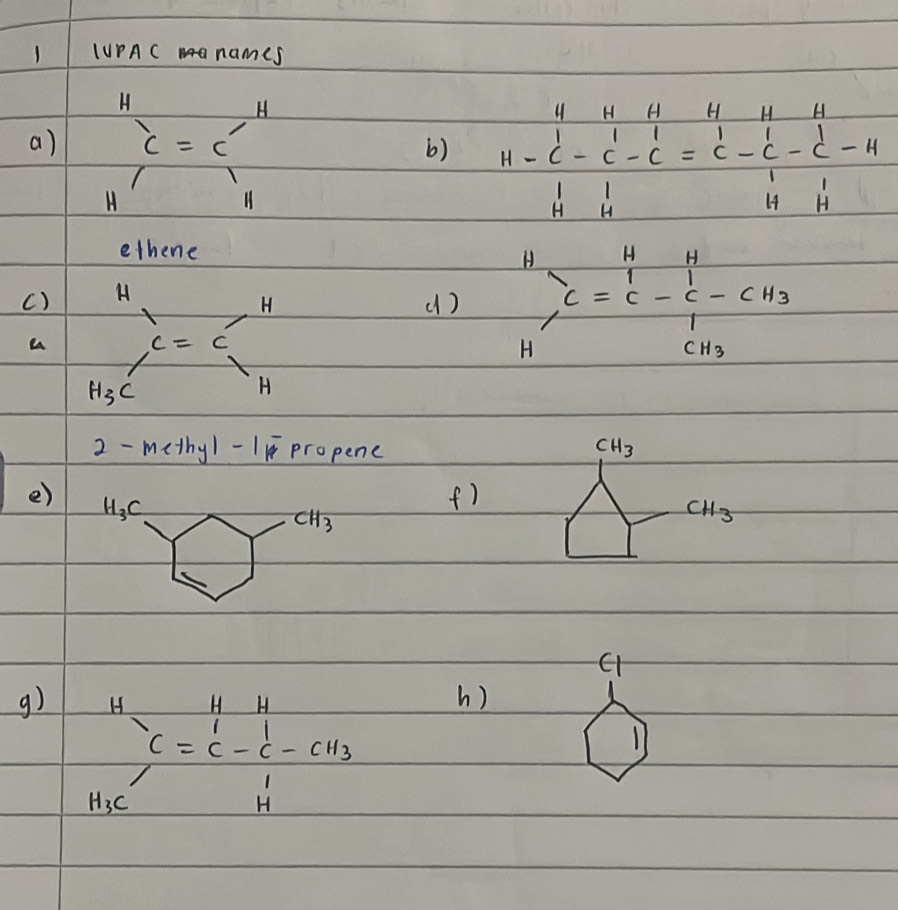 1 IUPAC names
H H H H H H H H
a) C = C b) H - C - C - C = C - C - C - H
H H H H H H
ethene
H H H
c) H H d) C = C - C - CH3
C = C H CH3
H3C H
2 - methyl - 1 - propene
CH3
e) H3C CH3 f) CH3
Cl
g) H H H h)
C = C - C - CH3
H3C H